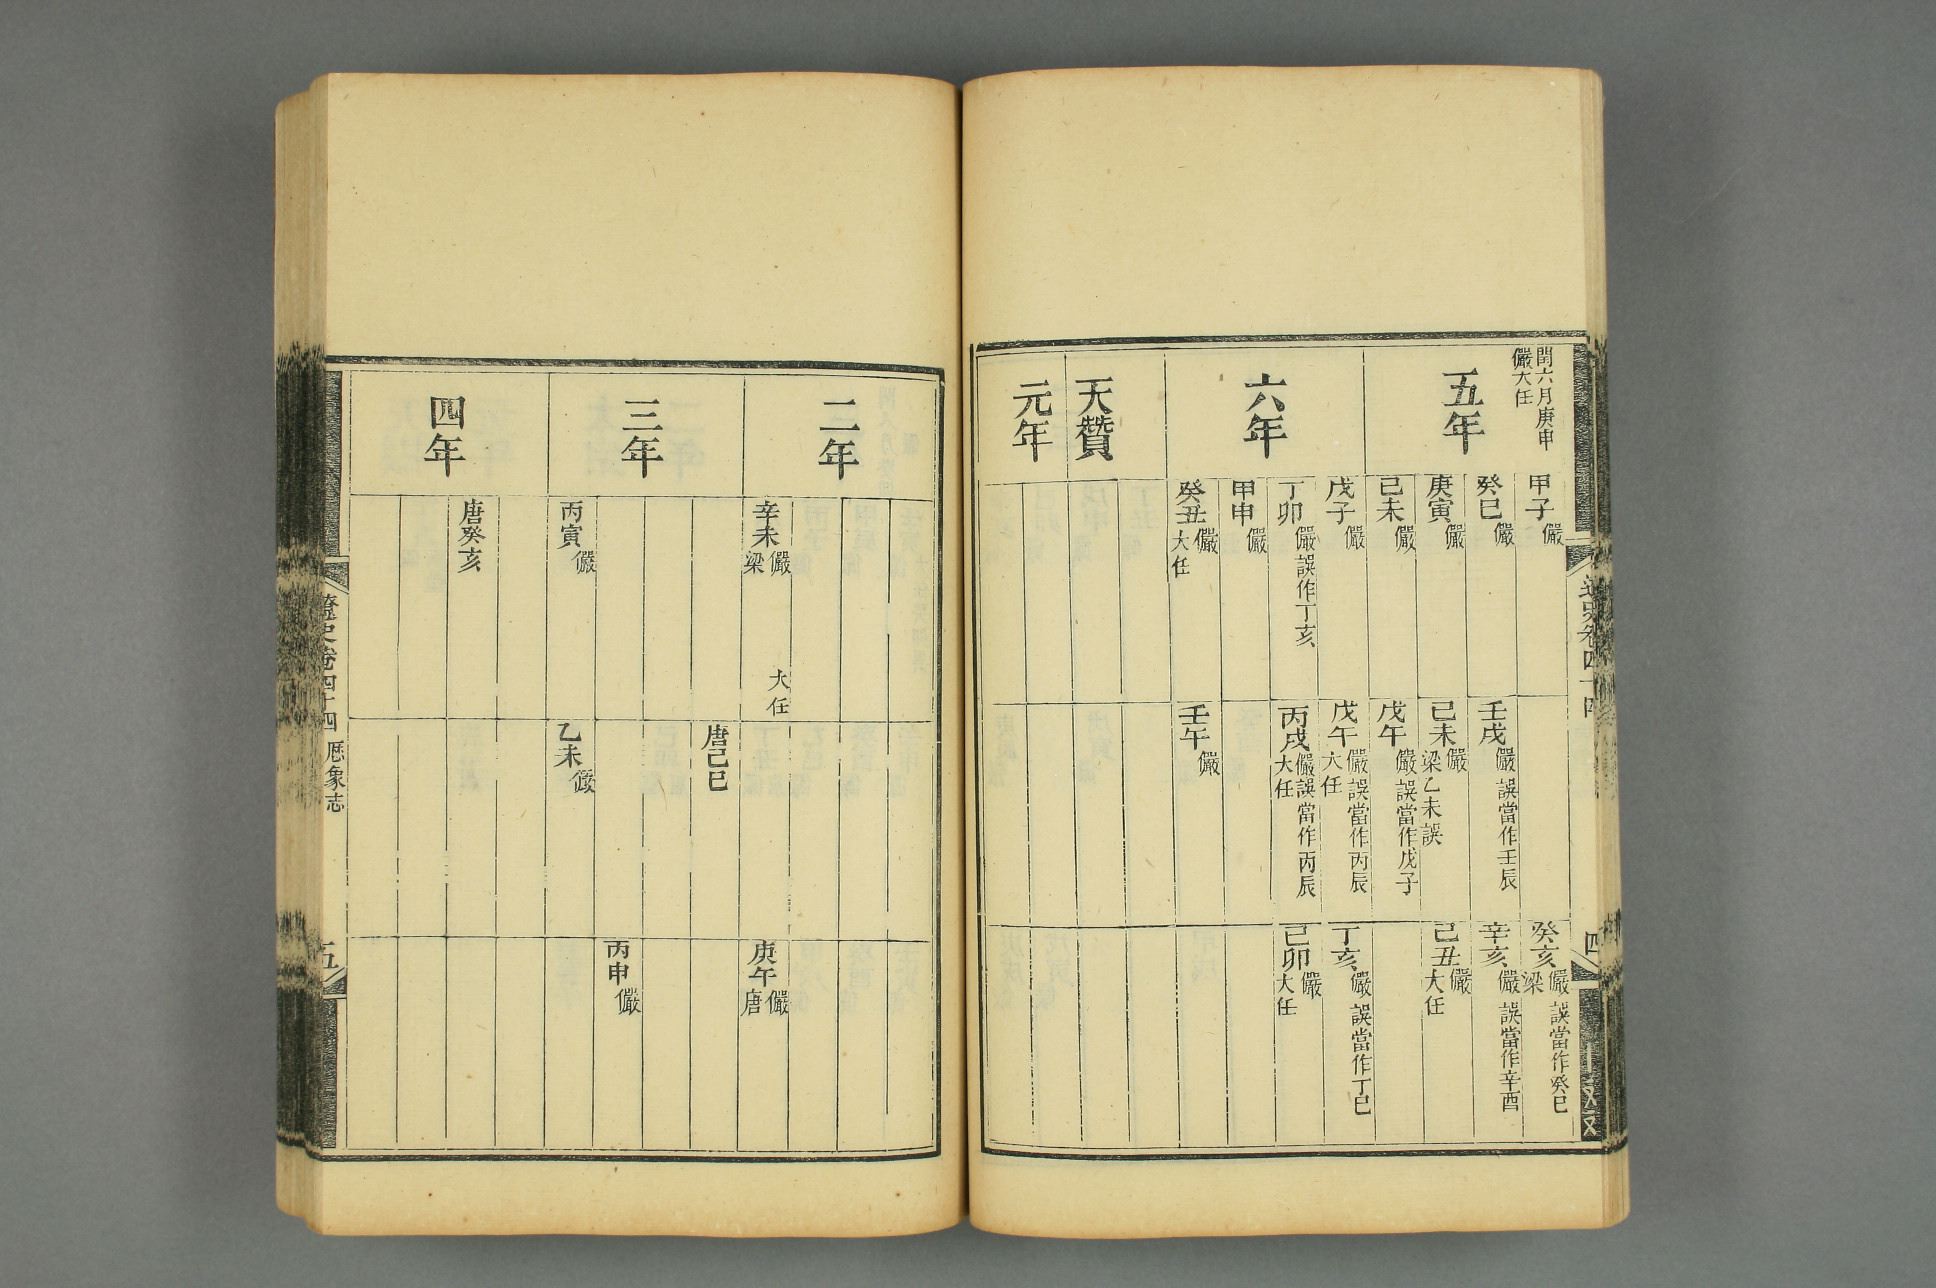 閏六月庚申
儼大任
五年
六年
天贊
元年
甲子儼
癸巳儼
庚寅儼
己未儼
戊子儼
丁卯儼誤作丁亥
甲申儼
癸丑儼
大任
壬戌儼誤當作壬辰
己未儼
梁乙未誤
戊午儼誤當作戊子
戊午儼誤當作丙辰
大任
丙戌儼誤當作丙辰
大任
壬午儼
癸亥儼誤當作癸巳
梁
辛亥儼誤當作辛酉
己丑儼
大任
丁亥儼誤當作丁巳
己卯儼
大任
遼史卷四十四
四
二年
三年
四年
辛未儼
梁
大任
丙寅儼
唐癸亥
唐己巳
乙未儼
庚午儼
唐
丙申儼
遼史卷四十四
厯象志
五